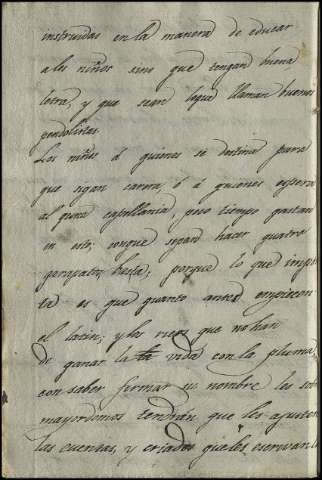 instruidas en la manera de educar
a los niños sino que tengan buena
letra, y que sean loque llaman buenos
pendolistas
Los niños á quienes se destina para
que sigan carrera, ó á quienes espera
alguna capellania, poco tiempo gastan
en esto; conque sepan hacer quatro
garapatos basta; porque lo que impor
ta es que quanto antes empiecen
el latin; y los ricos que no han
de ganar la vida con la pluma,
con saber firmar su nombre les sobra
mayordomos tendrán que les ajusten
las cuentas, y criados que les escrivan